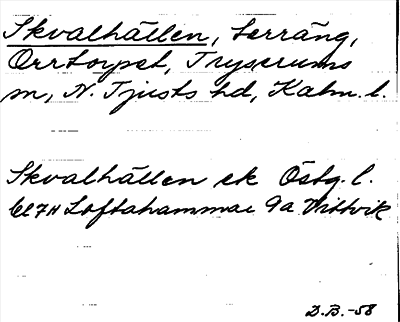 Skvalhällen, terräng,
Orrtorpet, Tryserums
sn, N. Tjusts hd, Kalm. l.
Skvalhällen ek Östg l.
Bl 7H Loftahammar 9a Vittvik
D.B.-58